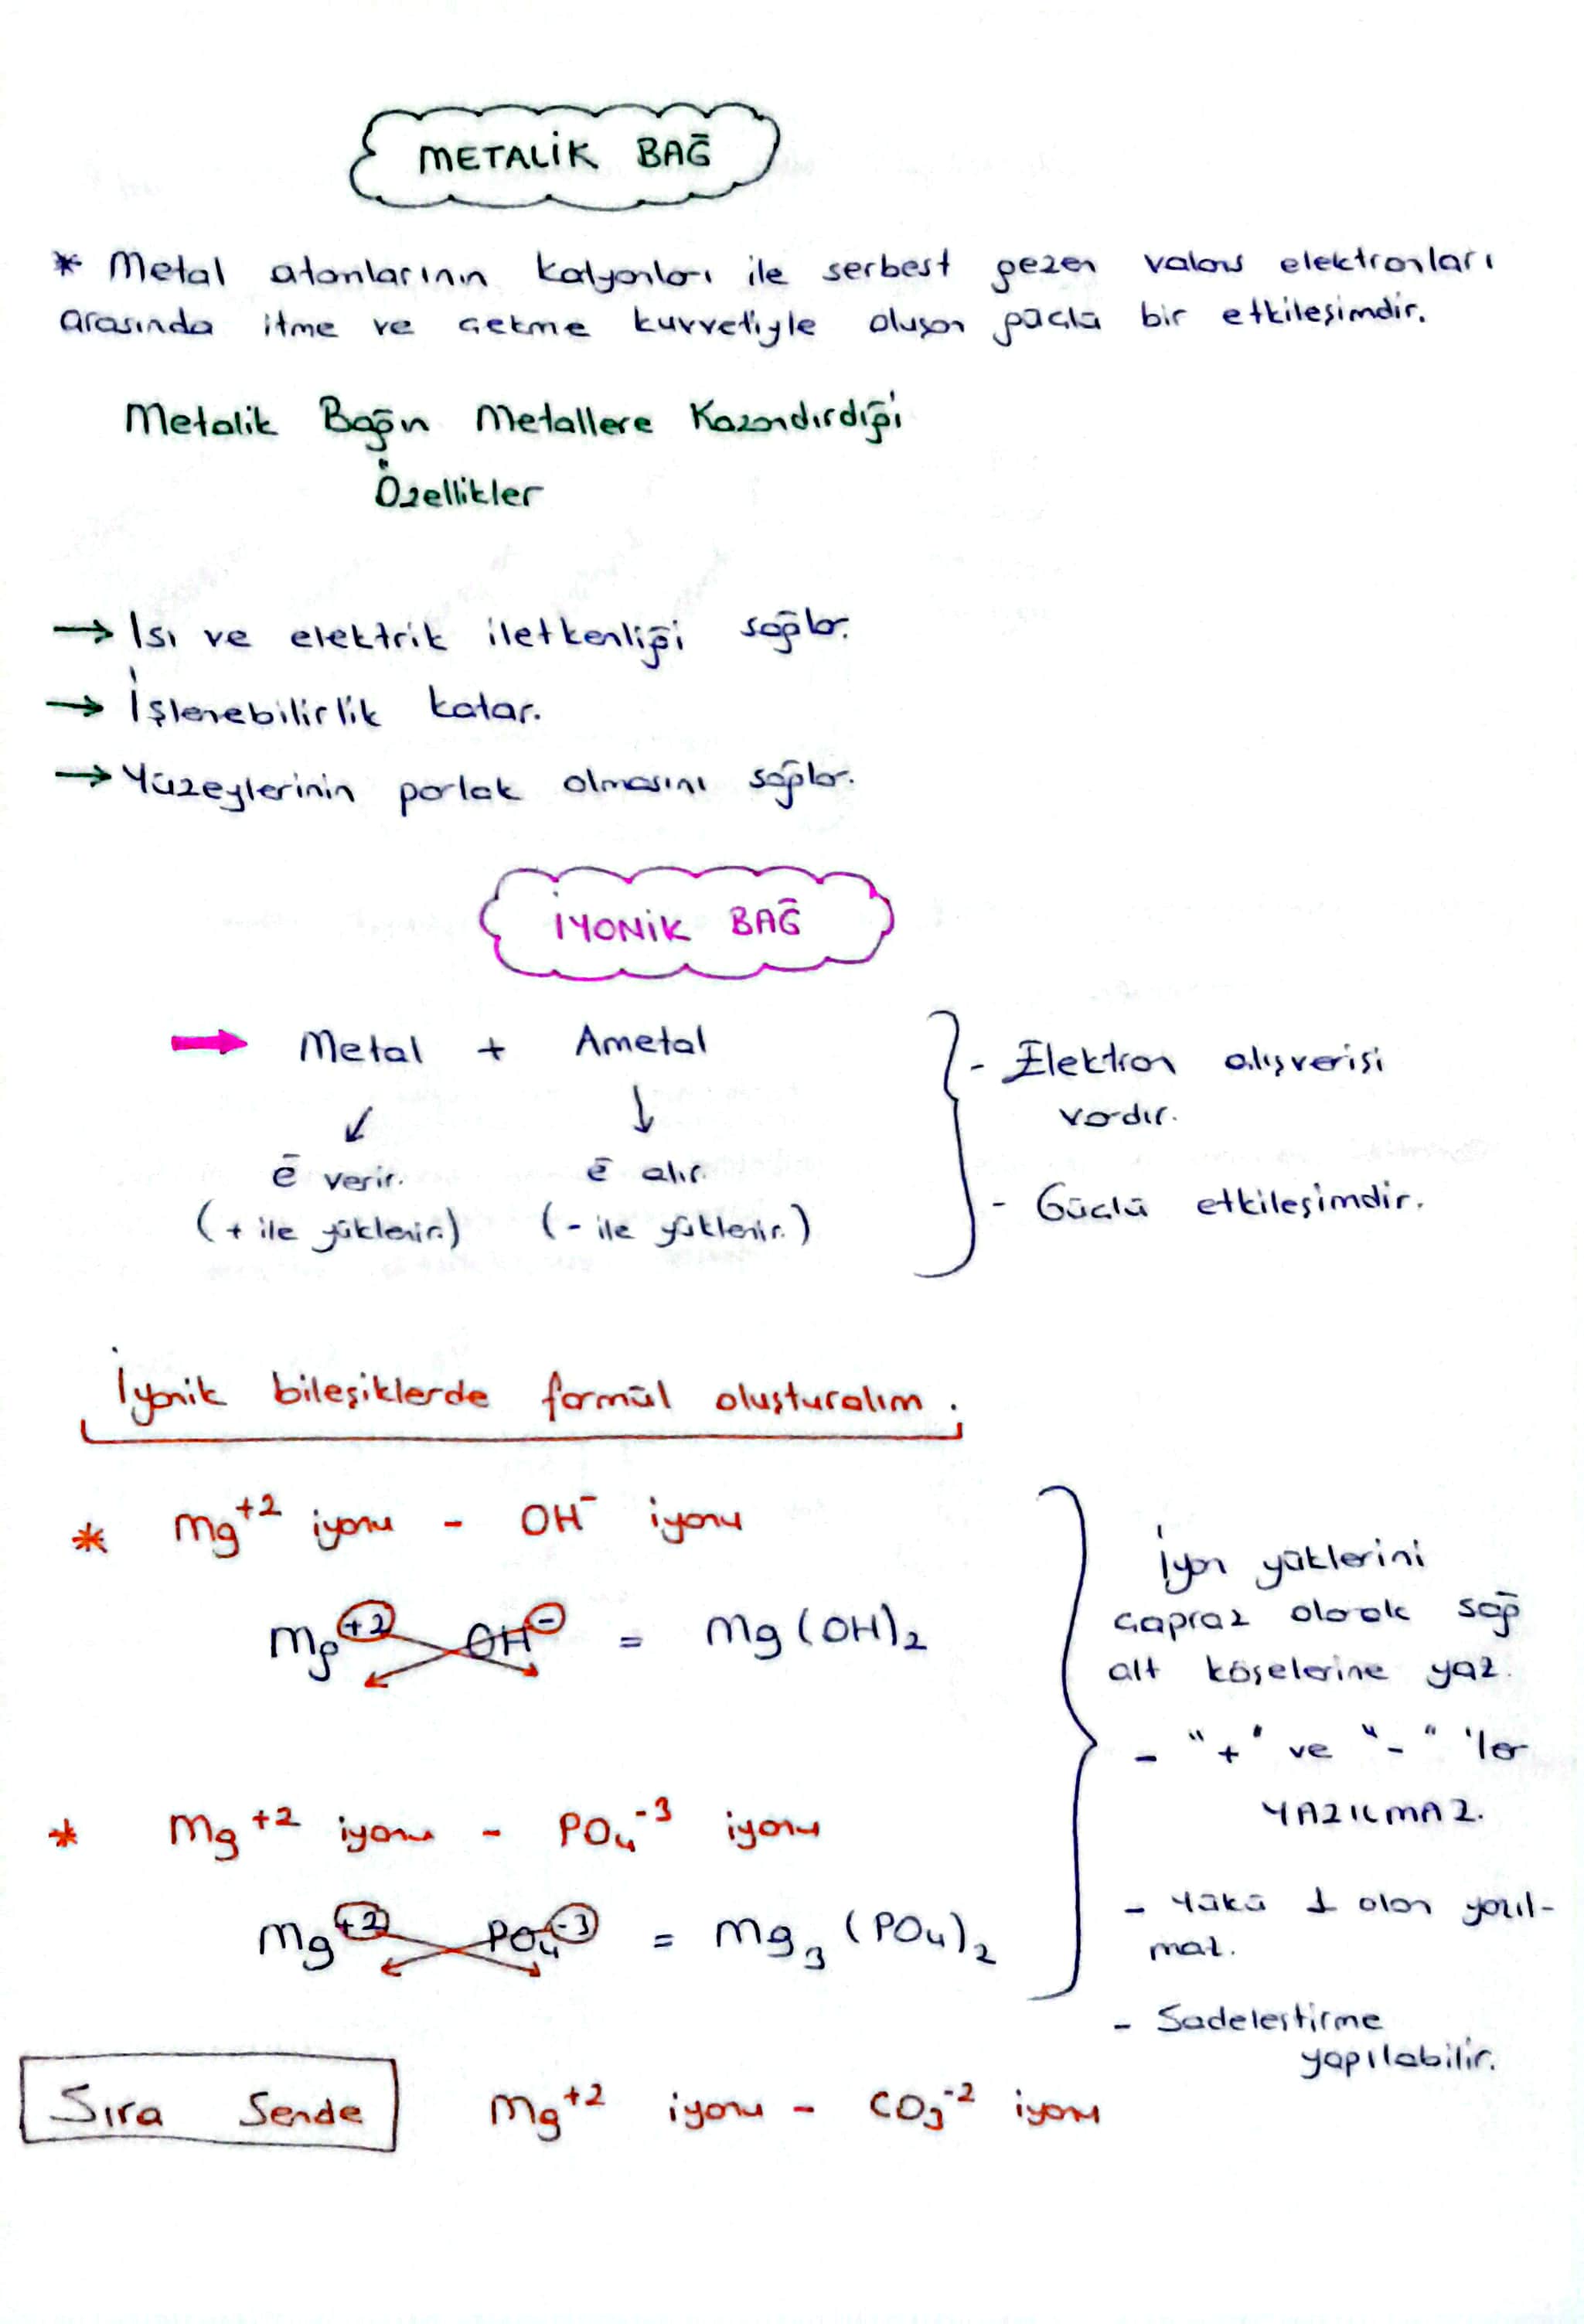 METALİK BAĞ
* Metal atomlarının katyonları ile serbest gezen valans elektronları
arasında itme ve çekme kuvvetiyle oluşan güçlü bir etkileşimdir.
Metalik Bağın Metallere Kazandırdığı
Özellikler
→ Isı ve elektrik iletkenliği sağlar.
→ İşlenebilirlik katar.
→ Yüzeylerinin parlak olmasını sağlar.
İYONİK BAĞ
→ Metal + Ametal
↓ ↓
e⁻ verir. e⁻ alır.
(+ ile yüklenir.) (- ile yüklenir.)
- Elektron alışverişi
vardır.
- Güçlü etkileşimdir.
İyonik bileşiklerde formül oluşturalım.
* Mg⁺² iyonu - OH⁻ iyonu
Mg⁺² OH⁻ = Mg(OH)₂
* Mg⁺² iyonu - PO₄⁻³ iyonu
Mg⁺² PO₄⁻³ = Mg₃(PO₄)₂
İyon yüklerini
çapraz olarak sağ
alt köşelerine yaz.
- "+" ve "-" 'ler
YAZILMAZ.
- Yükü 1 olan yazıl-
maz.
- Sadeleştirme
yapılabilir.
Sıra Sende Mg⁺² iyonu - CO₃⁻² iyonu